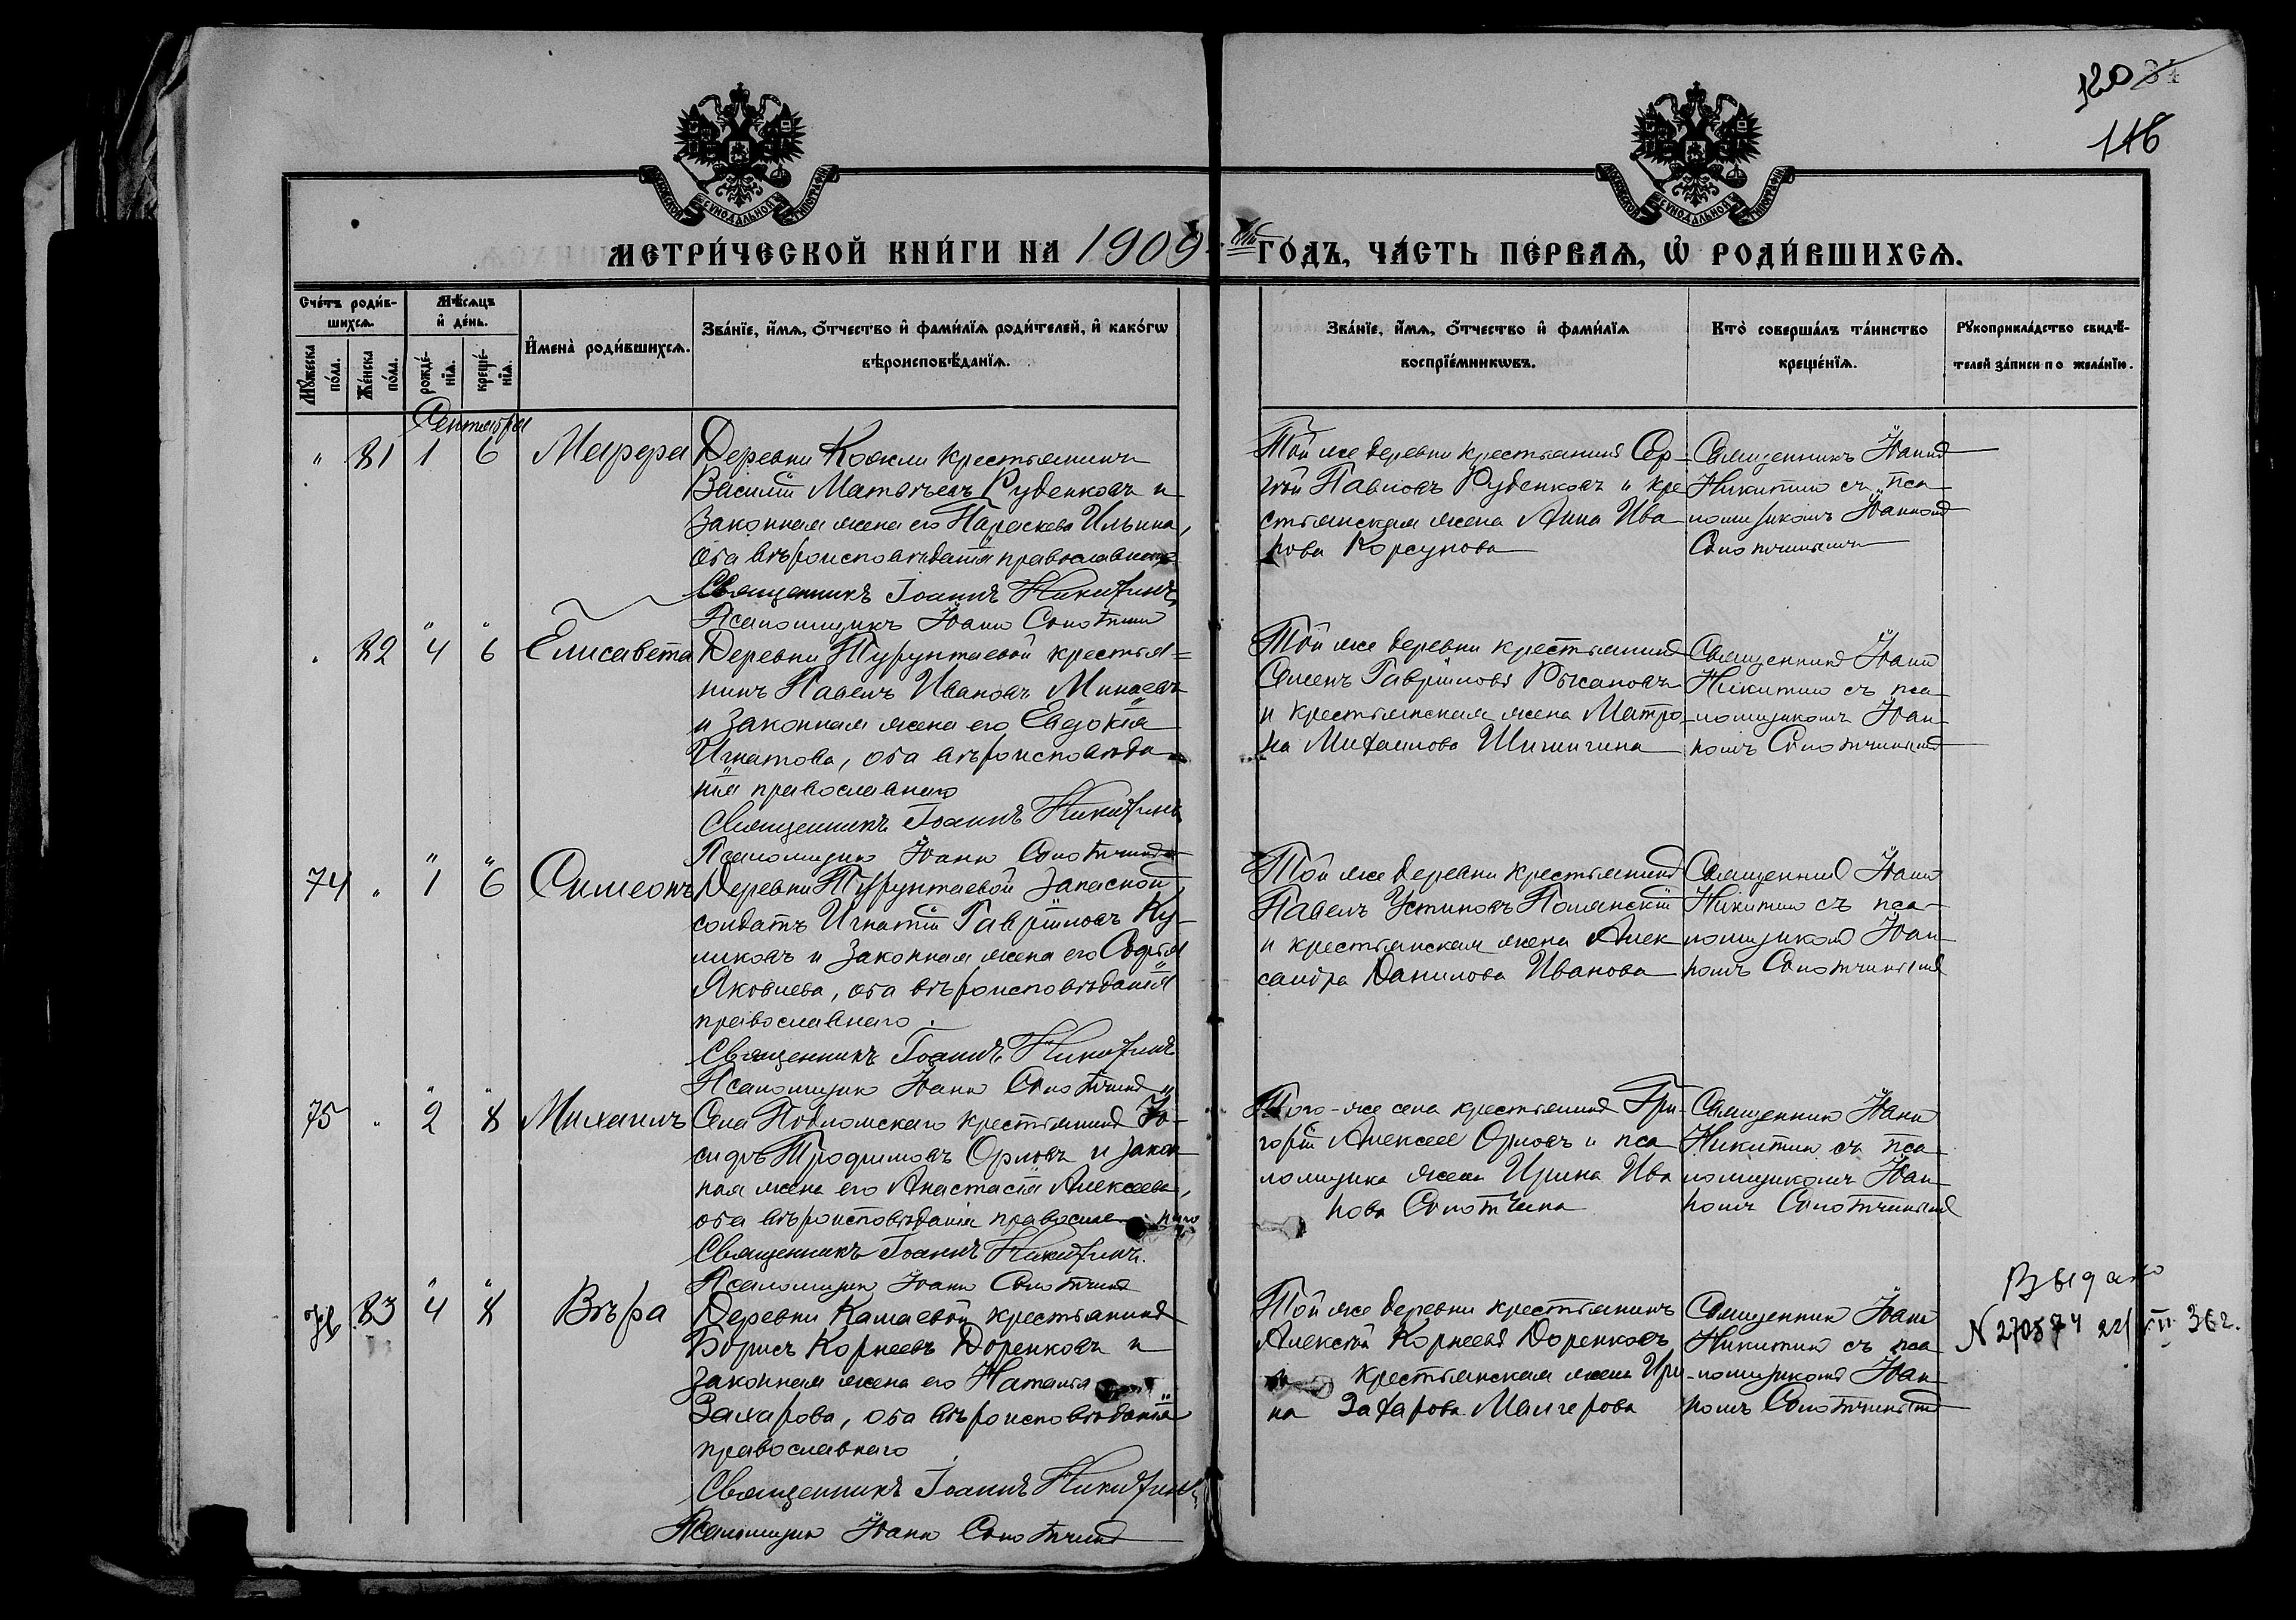 120 34
116
МОСКОВСКОЙ СѴНОДАЛЬНОЙ ТИПОГРАФІИ
МОСКОВСКОЙ СѴНОДАЛЬНОЙ ТИПОГРАФІИ
МЕТРИ́ЧЕСКОЙ КНИ́ГИ НА 1909
ГО́ДЪ, ЧА́СТЬ ПЕ́РВАѦ, Ѽ РОДИ́ВШИХСѦ.
Сче́тъ роди́в-
шихсѧ.
Мꙋ́жеска по́ла.
Же́нска по́ла.
Мѣ́сѧцъ
и҆ де́нь.
рожде́-
нїѧ.
креще́-
нїѧ.
И҆мена̀ роди́вшихсѧ.
Зва́нїе, и҆́мѧ, ѻ҆́тчество и҆ фами́лїѧ роди́телей, и҆ како́гѡ
вѣроисповѣ́данїѧ.
Зва́нїе, и҆́мѧ, ѻ҆́тчество и҆ фами́лїѧ
воспрїе́мникѡвъ.
Кто̀ соверша́лъ та́инство
креще́нїѧ.
Рꙋкоприкла́дство свидѣ́-
телей за́писи по жела́нїю.
Сентября
" 81 1 6 Марѳа
Деревни крестьянинъ
Василій Матвѣевъ Руденковъ и
законная жена его Параскева Ильина,
оба вѣроисповѣданія православнаго
Священникъ Іоаннъ Никитинъ
Псаломщикъ Іоаннъ
Той же деревни крестьянинъ Сер-
гѣй Павловъ Руденковъ и кре
стьянская жена Анна Ива
нова Корсунова
Священникъ Іоаннъ
Никитинъ съ пса-
ломщикомъ Іоанномъ
" 82 4 6 Елисавета
Деревни Турунтаевой крестья=
нинъ Павелъ Ивановъ Минаевъ
и законная жена его Евдокія
Игнатова, оба вѣроисповѣда-
нія православнаго
Священникъ Іоаннъ Никитинъ
Псаломщикъ Іоаннъ
Той же деревни крестьянинъ
Семенъ Гавріиловъ Рысановъ
и крестьянская жена Матро-
на Михаилова Шишигина
Священникъ Іоаннъ
Никитинъ съ пса-
ломщикомъ Іоан-
номъ
74 " 1 6 Симеонъ
Деревни Турунтаевой запасной
солдатъ Игнатій Гавріиловъ Ку-
ликовъ и законная жена его Софья
Яковлева, оба вѣроисповѣданія
православнаго.
Священникъ Іоаннъ Никитинъ
Псаломщикъ Іоаннъ
Той же деревни крестьянинъ
Павелъ Устиновъ Полянскій
и крестьянская жена Алек
сандра Данилова Иванова
Священникъ Іоаннъ
Никитинъ съ пса-
ломщикомъ Іоан-
номъ
75 " 2 8 Михаилъ
Села Подломскаго крестьянинъ Іо-
сифъ Трофимовъ Орловъ и закон
ная жена его Анастасія Алексеева,
оба вѣроисповѣданія православнаго
Священникъ Іоаннъ Никитинъ.
Псаломщикъ Іоаннъ
Того-же села крестьянинъ Гри-
горій Алексеевъ Орловъ и пса
ломщика жена Ирина Ива
нова
Священникъ Іоаннъ
Никитинъ съ пса-
ломщикомъ Іоан-
номъ
83 4 8 Вѣра
Деревни Камаевой крестьянинъ
Борисъ Корнеевъ Доренковъ и
законная жена его Наталія
Захарова, оба вѣроисповѣданія
православнаго
Священникъ Іоаннъ Никитинъ
Псаломщикъ Іоаннъ
Той же деревни крестьянинъ
Алексѣй Корнеевъ Доренковъ
и крестьянская жена Ири
на Захарова
Священникъ Іоаннъ
Никитинъ съ пса
ломщикомъ Іоан-
номъ
Выдано
N 270574 36 г.